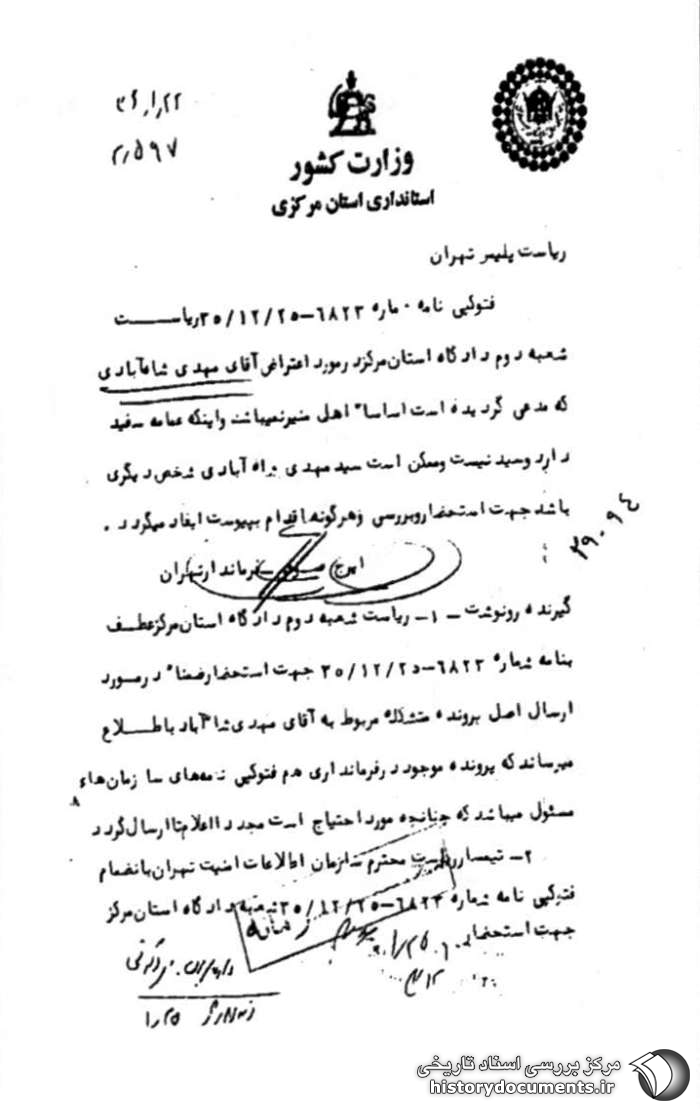 ۳۶٫۱٫۲۲
۲٫۵۹۷
وزارت کشور
استانداری استان مرکزی
ریاست پلیس تهران
فتوکپی نامه شماره ۶۸۲۳-۳۵/۱۲/۲۵ ریاست
شعبه دوم دادگاه استان مرکز در مورد اعتراض آقای مهدی شاه‌آبادی
که مدعی گردیده است اساسا" اهل منبر نمیباشند و اینکه عمامه سفید
دارد و سید نیست و ممکن است سید مهدی شاه آبادی شخص دیگری
باشد جهت استحضار و بررسی و هرگونه اقدام بپیوست ایفاد میگردد.
۲۹۰۹۴
ایرج فرماندار تهران
گیرنده رونوشت - ۱- ریاست شعبه دوم دادگاه استان مرکز عطف
بنامه شماره ۶۸۲۳-۳۵/۱۲/۲۵ جهت استحضار ضمنا" در مورد
ارسال اصل پرونده متشکله مربوط به آقای مهدی شاه آباد باطلاع
میرساند که پرونده موجود در فرمانداری هم فتوکپی نامه‌های سازمان‌های
مسئول میباشد که چنانچه مورد احتیاج است مجددا اعلام تا ارسال گردد
۲- تیمسار ریاست محترم سازمان اطلاعات امنیت تهران بانضمام
فتوکپی نامه شماره ۶۸۲۳-۳۵/۱۲/۲۵ شعبه دادگاه استان مرکز
جهت استحضار.
۱٫۲۵
۳۱۲
۱٫۲۵
مرکز بررسی اسناد تاریخی
historydocuments.ir